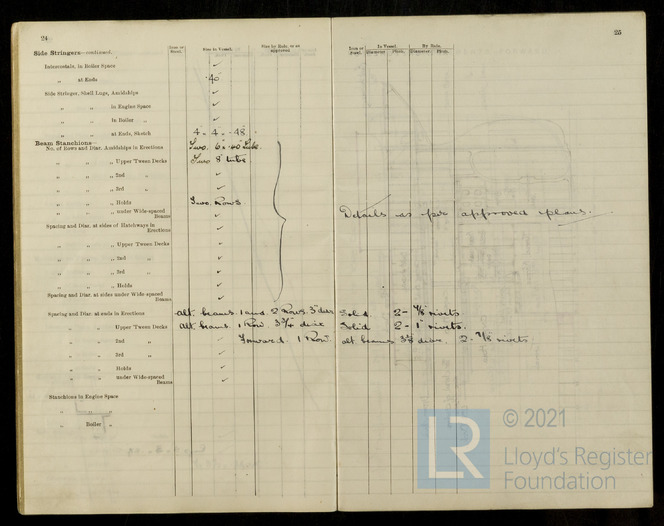 24
25
Side Stringers—continued.
Item or Specl. Size in Vessel. Size by Rule, or as approved
Item or Specl. In Vessel By Rule.
Diameter Pitch. Diameter Pitch.
Intercostals, in Boiler Space ✓
„ at Ends ·40
Side Stringer, Shell Lugs, Amidships ✓
„ „ in Engine Space ✓
„ „ in Boiler „ ✓
„ „ at Ends, Sketch 4 · 4 · ·48
Beam Stanchions—
No. of Rows and Diar. Amidships in Erections Two 6 × ·40 tube
„ „ „ Upper Tween Decks Two 8" tube
„ „ „ 2nd „ ✓
„ „ „ 3rd „ ✓
„ „ „ Holds Two Rows
„ „ „ under Wide-spaced Beams ✓ Details as per approved plans.
Spacing and Diar. at sides of Hatchways in Erections ✓
„ „ „ Upper Tween Decks ✓
„ „ „ 2nd „ ✓
„ „ „ 3rd „ ✓
„ „ „ Holds ✓
Spacing and Diar. at sides under Wide-spaced Beams ✓
Spacing and Diar. at ends in Erections alt beams. 1 and 2 Rows. 3" diar Solid 2 - 7/8 rivets
„ „ Upper Tween Decks alt beams. 1 Row. 3 3/4 diar Solid 2 - 1" rivets.
„ „ 2nd „ Forward. 1 Row. alt beams diar. 2. 7/8 rivets
„ „ 3rd „ ✓
„ „ Holds ✓
„ „ „ under Wide-spaced Beams ✓
Stanchions in Engine Space
„ „ „
„ Boiler „
LR
© 2021
Lloyd's Register
Foundation